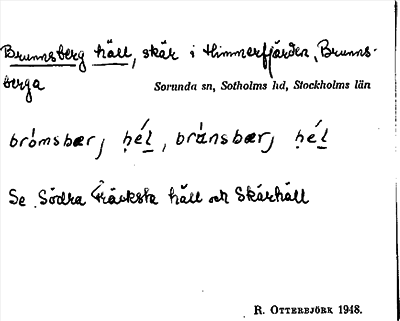 Brunnsberg häll, skär i Himmerfjärden, Brunns-
berga
Sorunda sn, Sotholms hd, Stockholms län
Se Södra Träcksta häll och Skärhäll
R. OTTERBJÖRK 1948.